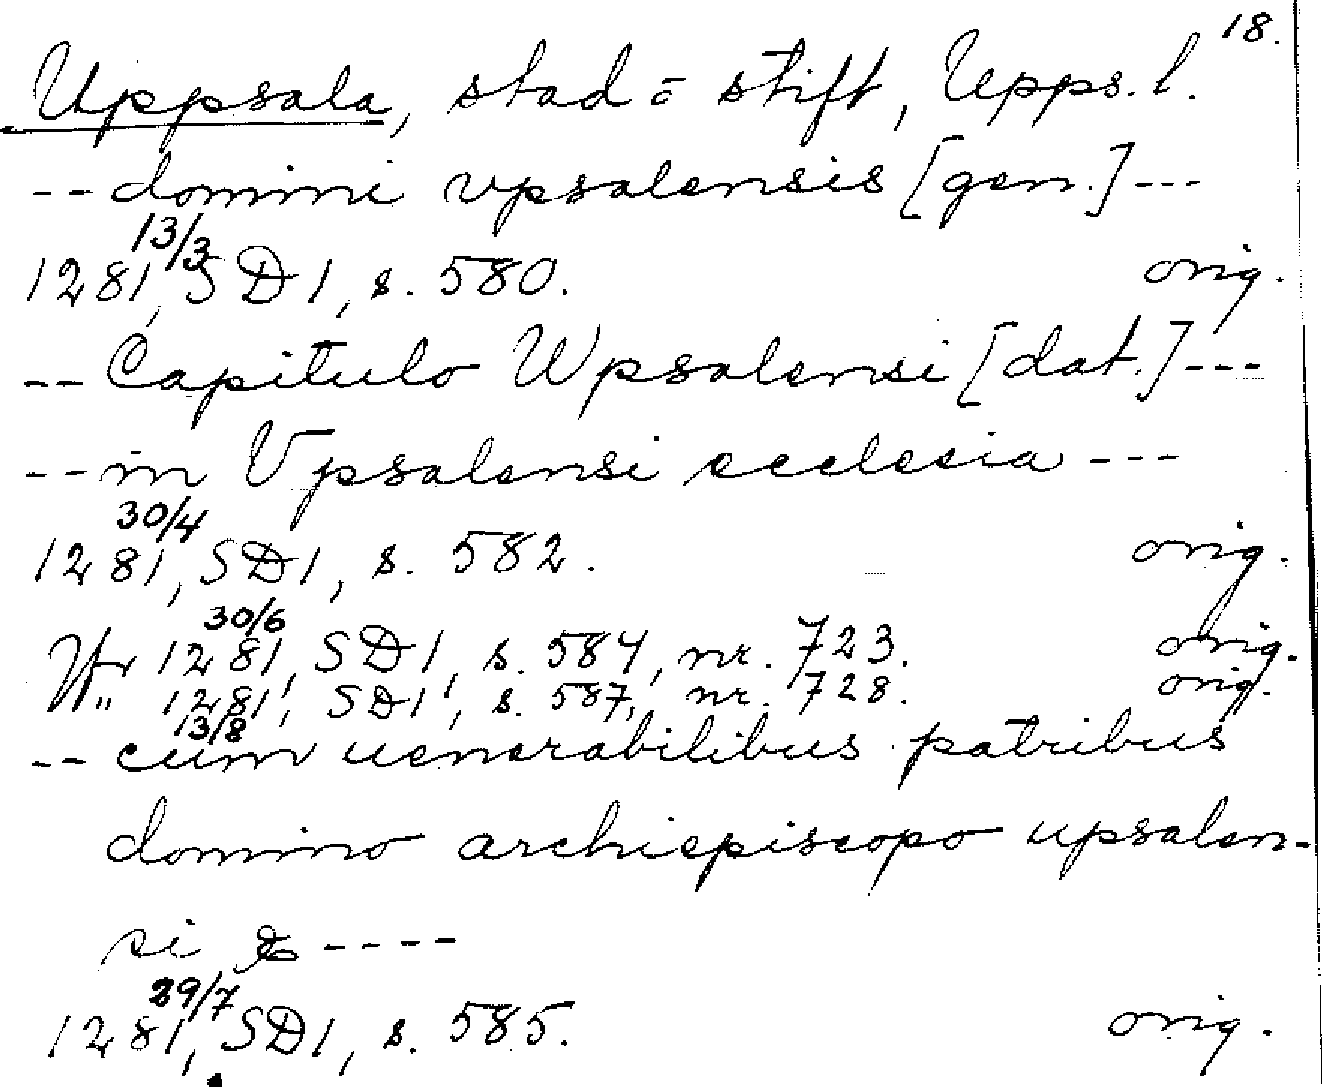 18.
Uppsala, stad o. stift, Upps. l.
-- domini vpsalensis [gen.] ---
13/3
1281, SD 1, s. 580. orig.
-- Capitulo Wpsalensi [dat.] ---
-- in Vpsalensi ecclesia ---
30/4
1281, SD 1, s. 582. orig.
30/6
1281, SD 1, s. 584, nr. 723. orig.
" 1281, SD 1, s. 587, nr. 728. orig.
13/8
-- cum uenerabilibus patribus
domino archiepiscopo upsalen-
si & ----
29/7
1281, SD 1, s. 585. orig.